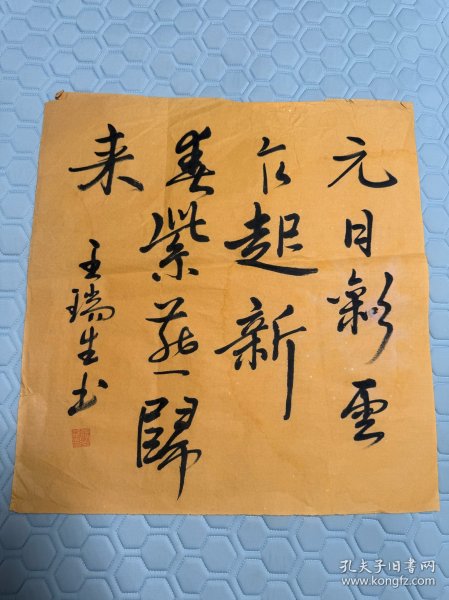 元日彩雲
起新
春紫燕歸
来
王瑞生书
孔夫子旧书网
www.kongfz.com